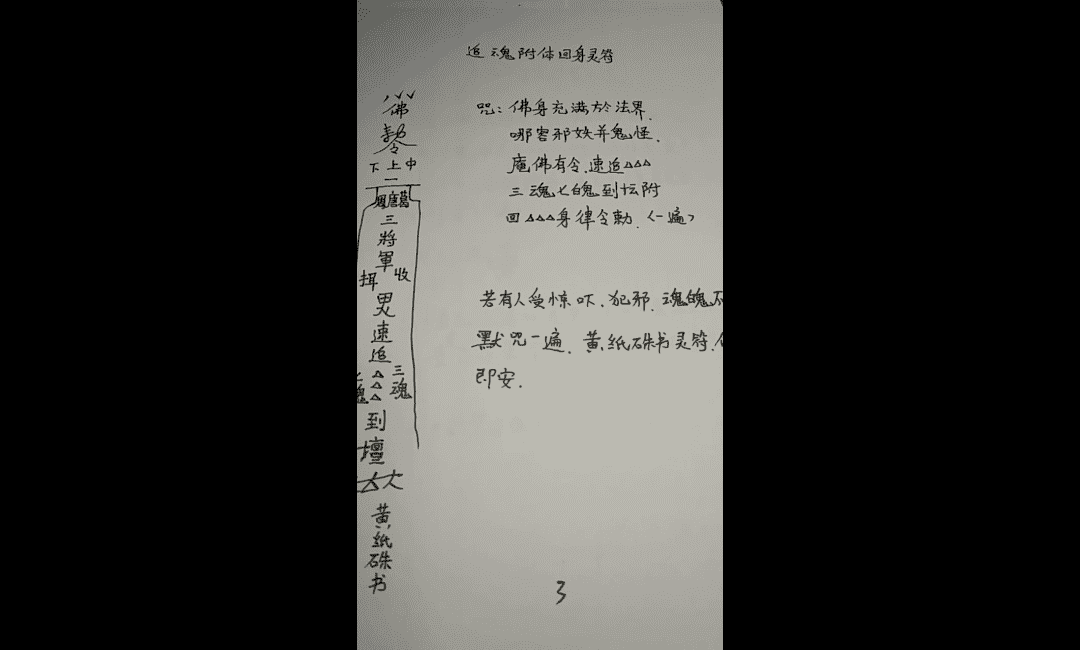 追魂附体回身灵符
咒：佛身充满於法界.
哪害邪妖并鬼怪.
庵佛有令.速追△△△
三魂七魄到坛附
回△△△身律令勅.〈一遍〉
若有人受惊吓.犯邪.魂魄不
默咒一遍.黄纸硃书灵符.
即安.
佛
勅令
下上中
唐葛
三將軍
收
男
速追
△△△
三魂
到壇
黄纸硃书
3